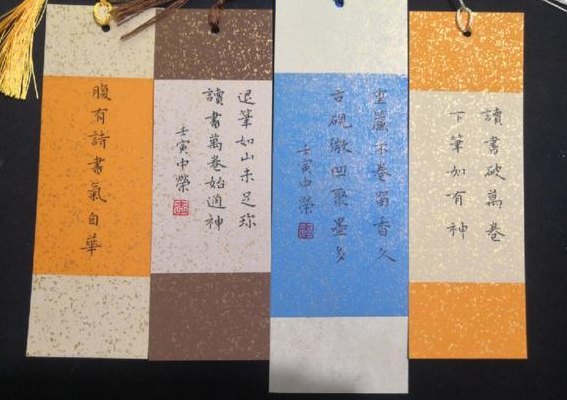 腹有詩書氣自華
退筆如山未足珍
讀書萬卷始通神
壬寅中榮
重簾不卷留香久
古硯微凹聚墨多
壬寅中榮
讀書破萬卷
下筆如有神